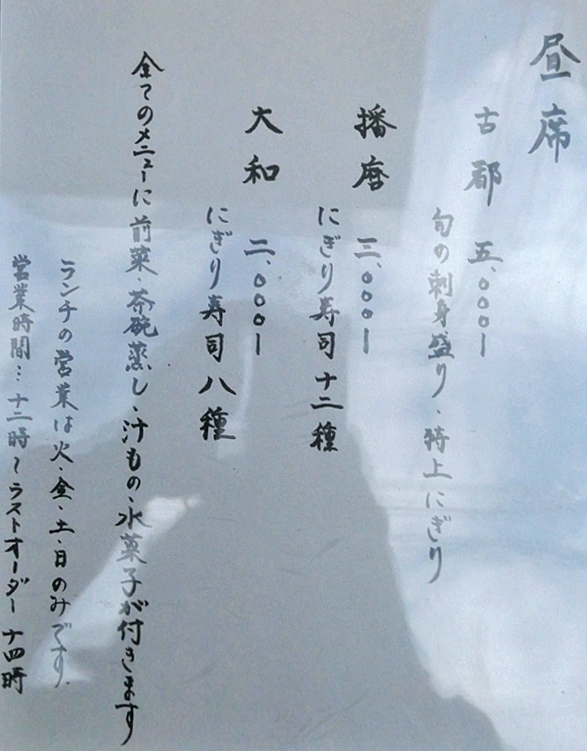 昼席
古都 五、〇〇〇ー
旬の刺身盛り、特上にぎり
播磨 三、〇〇〇ー
にぎり寿司十二種
大和 二、〇〇〇ー
にぎり寿司八種
全てのメニューに前菜、茶碗蒸し、汁もの、水菓子が付きます
ランチの営業は火・金・土・日のみです。
営業時間…十二時〜ラストオーダー十四時